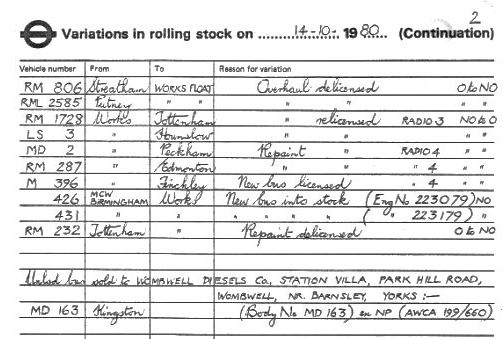 2
Variations in rolling stock on 14-10- 1980 (Continuation)
Vehicle number From To Reason for variation
RM 806 Streatham WORKS FLOAT Overhaul delicensed O to NO
RML 2585 Putney " " " " "
RM 1728 Works Tottenham " relicensed RADIO 3 NO to O
LS 3 " Hounslow " " "
MD 2 " Peckham Repaint " RADIO 4 " "
RM 287 " Edmonton " " " 4 "
M 396 " Finchley New bus licensed " 4 "
426 MCW BIRMINGHAM Works New bus into stock (Eng No 223079) NO
431 " " " " " " ( " 223179) "
RM 232 Tottenham Repaint delicensed O to NO
bus sold to WOMBWELL DIESELS Co., STATION VILLA, PARK HILL ROAD,
WOMBWELL, NR. BARNSLEY, YORKS :—
MD 163 Kingston (Body No MD 163) ex NP (AWCA 199/660)